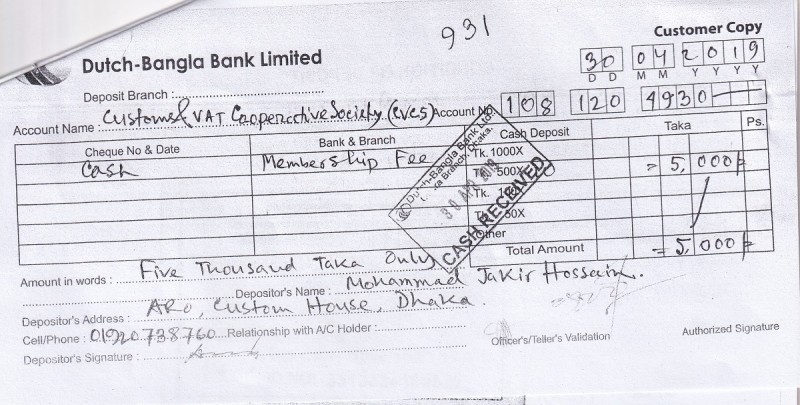 931
Customer Copy
Dutch-Bangla Bank Limited
30 04 2019
D D M M Y Y Y Y
Deposit Branch :
Account Name : Customs & VAT Cooperative Society (CVCS) Account No. 108 120 4930
Cheque No & Date Bank & Branch Cash Deposit Taka Ps.
Cash Membership Fee Tk. 1000X = 5,000/-
Tk. 500X
Tk. 100X
Tk. 50X
Other
Total Amount = 5,000/-
Dutch-Bangla Bank Ltd.
Branch, Dhaka.
30 APR 2019
CASH RECEIVED
Amount in words : Five Thousand Taka Only
Depositor's Name : Mohammad Jakir Hossain.
Depositor's Address : ARO, Custom House, Dhaka.
Cell/Phone : 01920738760 Relationship with A/C Holder :
Depositor's Signature :
Officer's/Teller's Validation
Authorized Signature